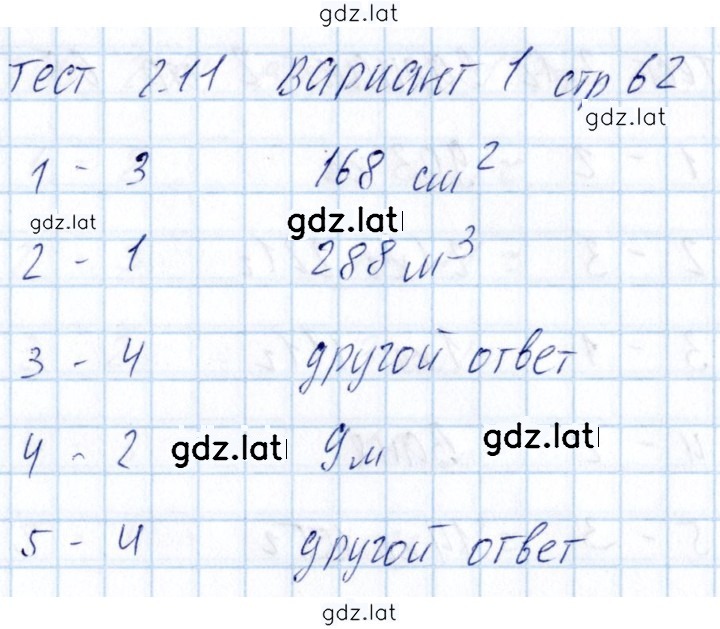 gdz.lat
Тест 2.11 Вариант 1 стр 62
gdz.lat
1 - 3 168 см²
gdz.lat gdz.lat
2 - 1 288 м³
3 - 4 другой ответ
4 - 2 gdz.lat 9м gdz.lat
5 - 4 другой ответ
gdz.lat